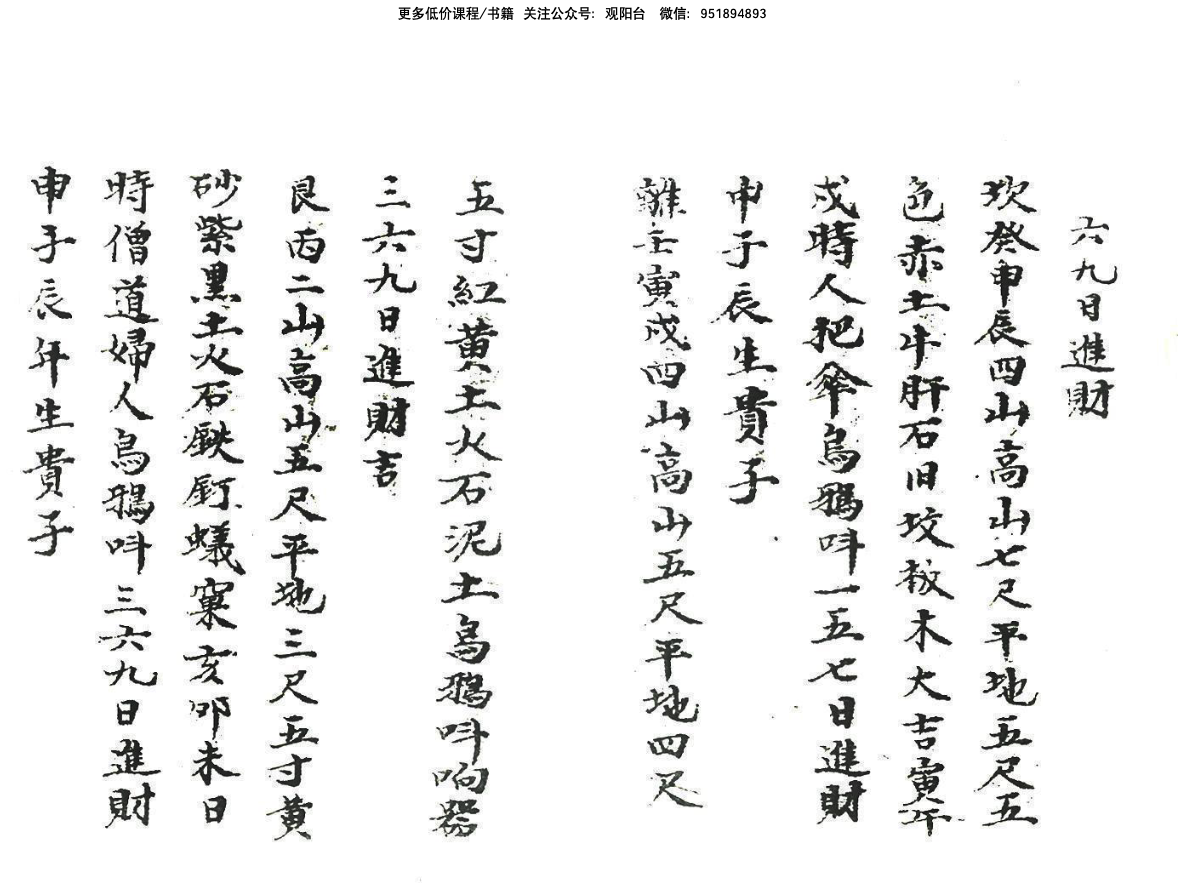 更多低价课程/书籍 关注公众号: 观阳台 微信: 951894893
六九日進財
坎癸申辰四山高山七尺平地五尺五
色赤土牛肝石旧坟板木大吉寅午
戍時人把傘烏鴉呌一五七日進財
申子辰生貴子
離壬寅戍四山高山五尺平地四尺
五寸紅黄土火石泥土烏鴉呌响器
三六九日進財吉
艮丙二山高山五尺平地三尺五寸黄
砂紫黒土火石鉄釘蟻窠亥卯未日
時僧道婦人烏鴉呌三六九日進財
申子辰年生貴子